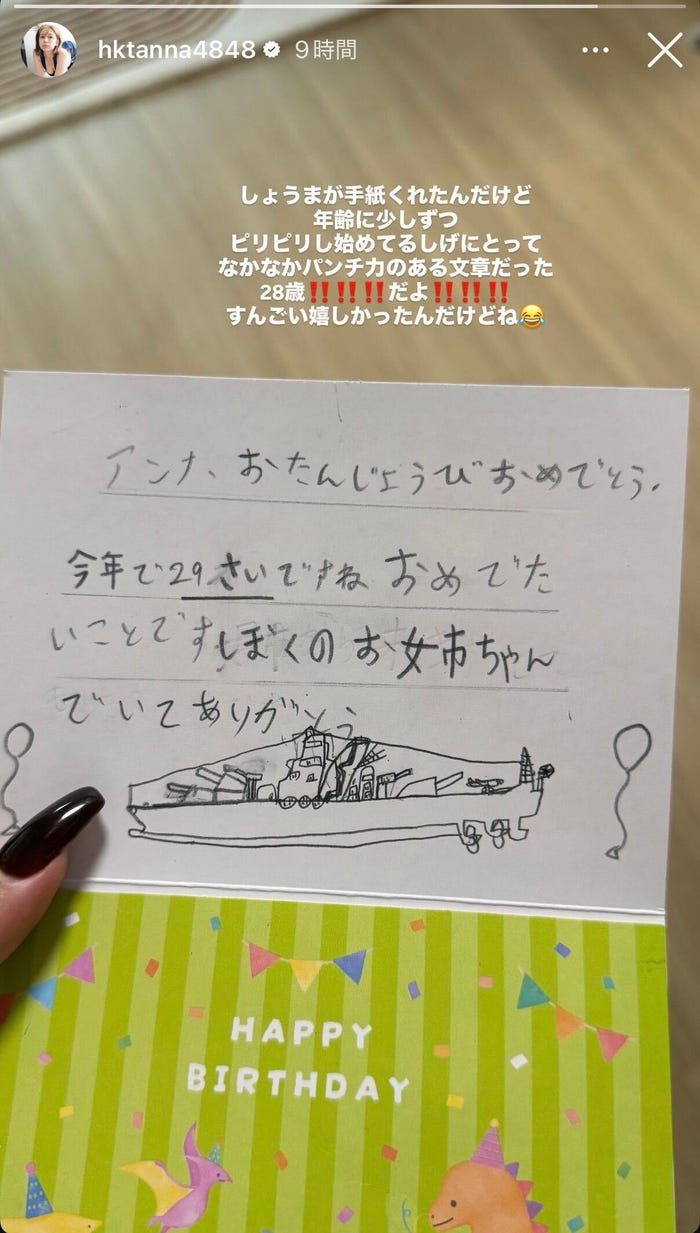 hktanna4848 9時間
しょうまが手紙くれたんだけど
年齢に少しずつ
ピリピリし始めてるしげにとって
なかなかパンチ力のある文章だった
28歳‼️‼️‼️だよ‼️‼️‼️
すんごい嬉しかったんだけどね😂
アンナ、おたんじょうびおめでとう.
今年で29さいですね おめでた
いことですぼくのお姉ちゃん
でいてありがとう
HAPPY
BIRTHDAY